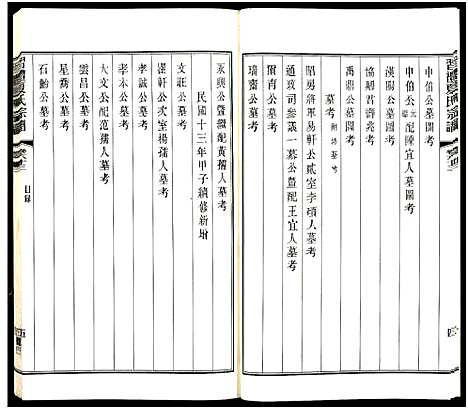 申伯公墓圖考
申伯公元配陳宜人墓圖考
漢陽公墓考
協卿君壽兆考
禹鼎公墓考
墓考
昭勇將軍易軒公貳室李碩人墓考
通政司參議一蓼公暨配王宜人墓考
隈南公墓考
瑞齋公墓考
永興公暨繼配黃孺人墓考
民國十三年甲子續修新增
文莊公墓考
瑶軒公次室楊孺人墓考
孝永公墓考
孝誠公墓考
大文公配范孺人墓考
雲昌公墓考
星喬公墓考
石齡公墓考
目錄